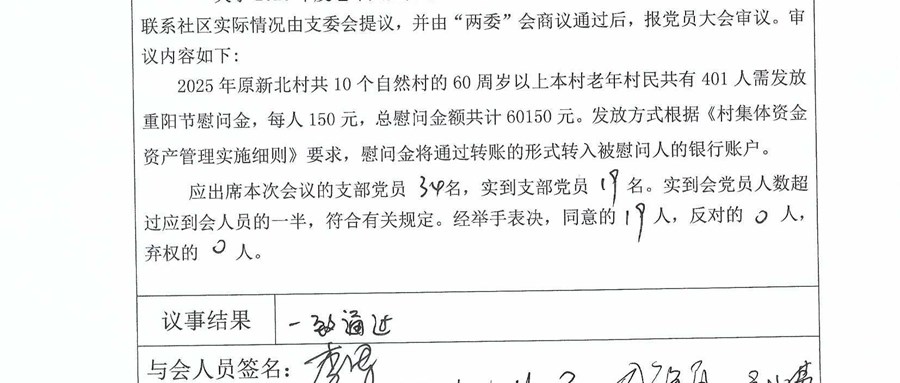 联系社区实际情况由支委会提议，并由“两委”会商议通过后，报党员大会审议。审
议内容如下：
2025 年原新北村共 10 个自然村的 60 周岁以上本村老年村民共有 401 人需发放
重阳节慰问金，每人 150 元，总慰问金额共计 60150 元。发放方式根据《村集体资金
资产管理实施细则》要求，慰问金将通过转账的形式转入被慰问人的银行账户。
应出席本次会议的支部党员 34名，实到支部党员 19 名。实到会党员人数超
过应到会人员的一半，符合有关规定。经举手表决，同意的 19 人，反对的 0 人，
弃权的 0 人。
议事结果 一致通过
与会人员签名：